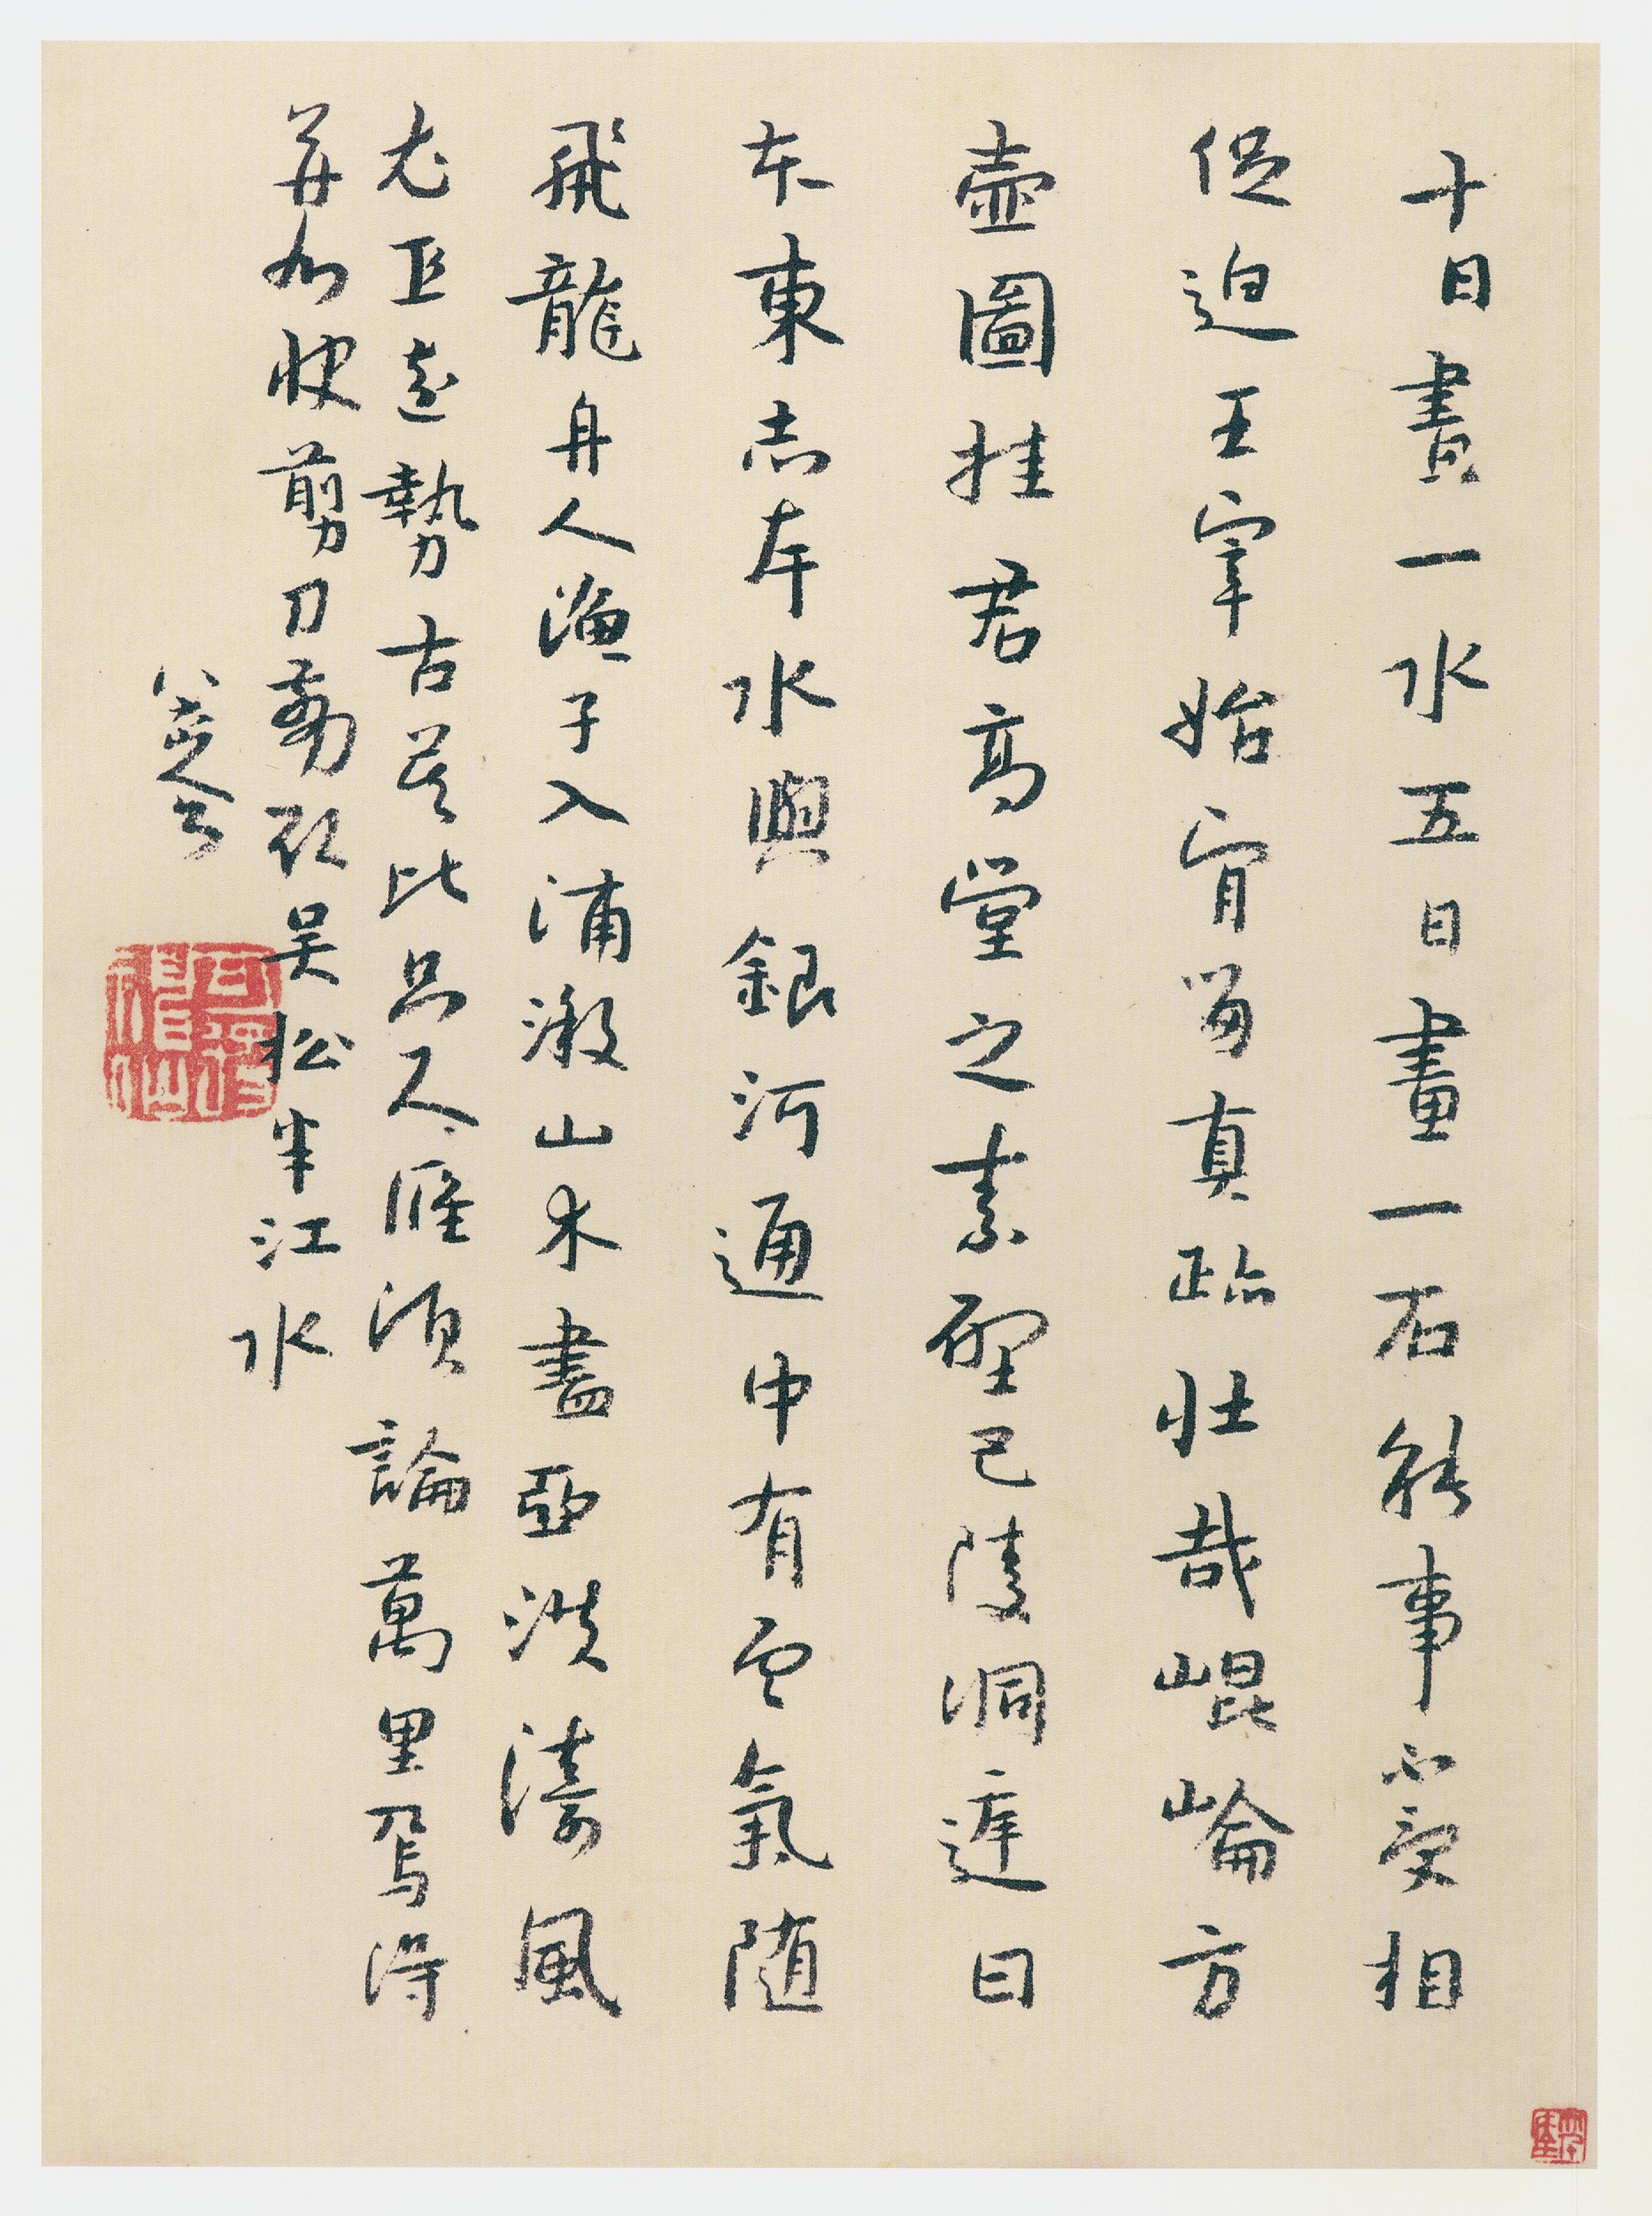 十日畫一水五日畫一石能事不受相
促迫王宰始肯留真跡壯哉崐崘方
壺圖挂君高堂之素壁巴陵洞庭日
本東赤岸水與銀河通中有雲氣隨
飛龍舟人漁子入浦漵山木盡亞洪濤風
尤工遠勢古莫比只尺應須論萬里焉得
并州快剪刀剪取吳松半江水
八大山人